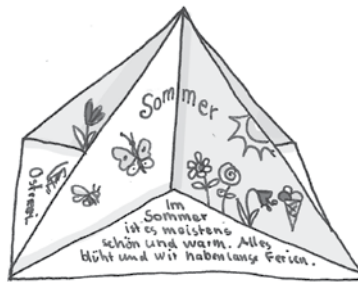 Sommer
Osterei
Im
Sommer
ist es meistens
schön und warm. Alles
blüht und wir haben lange Ferien.